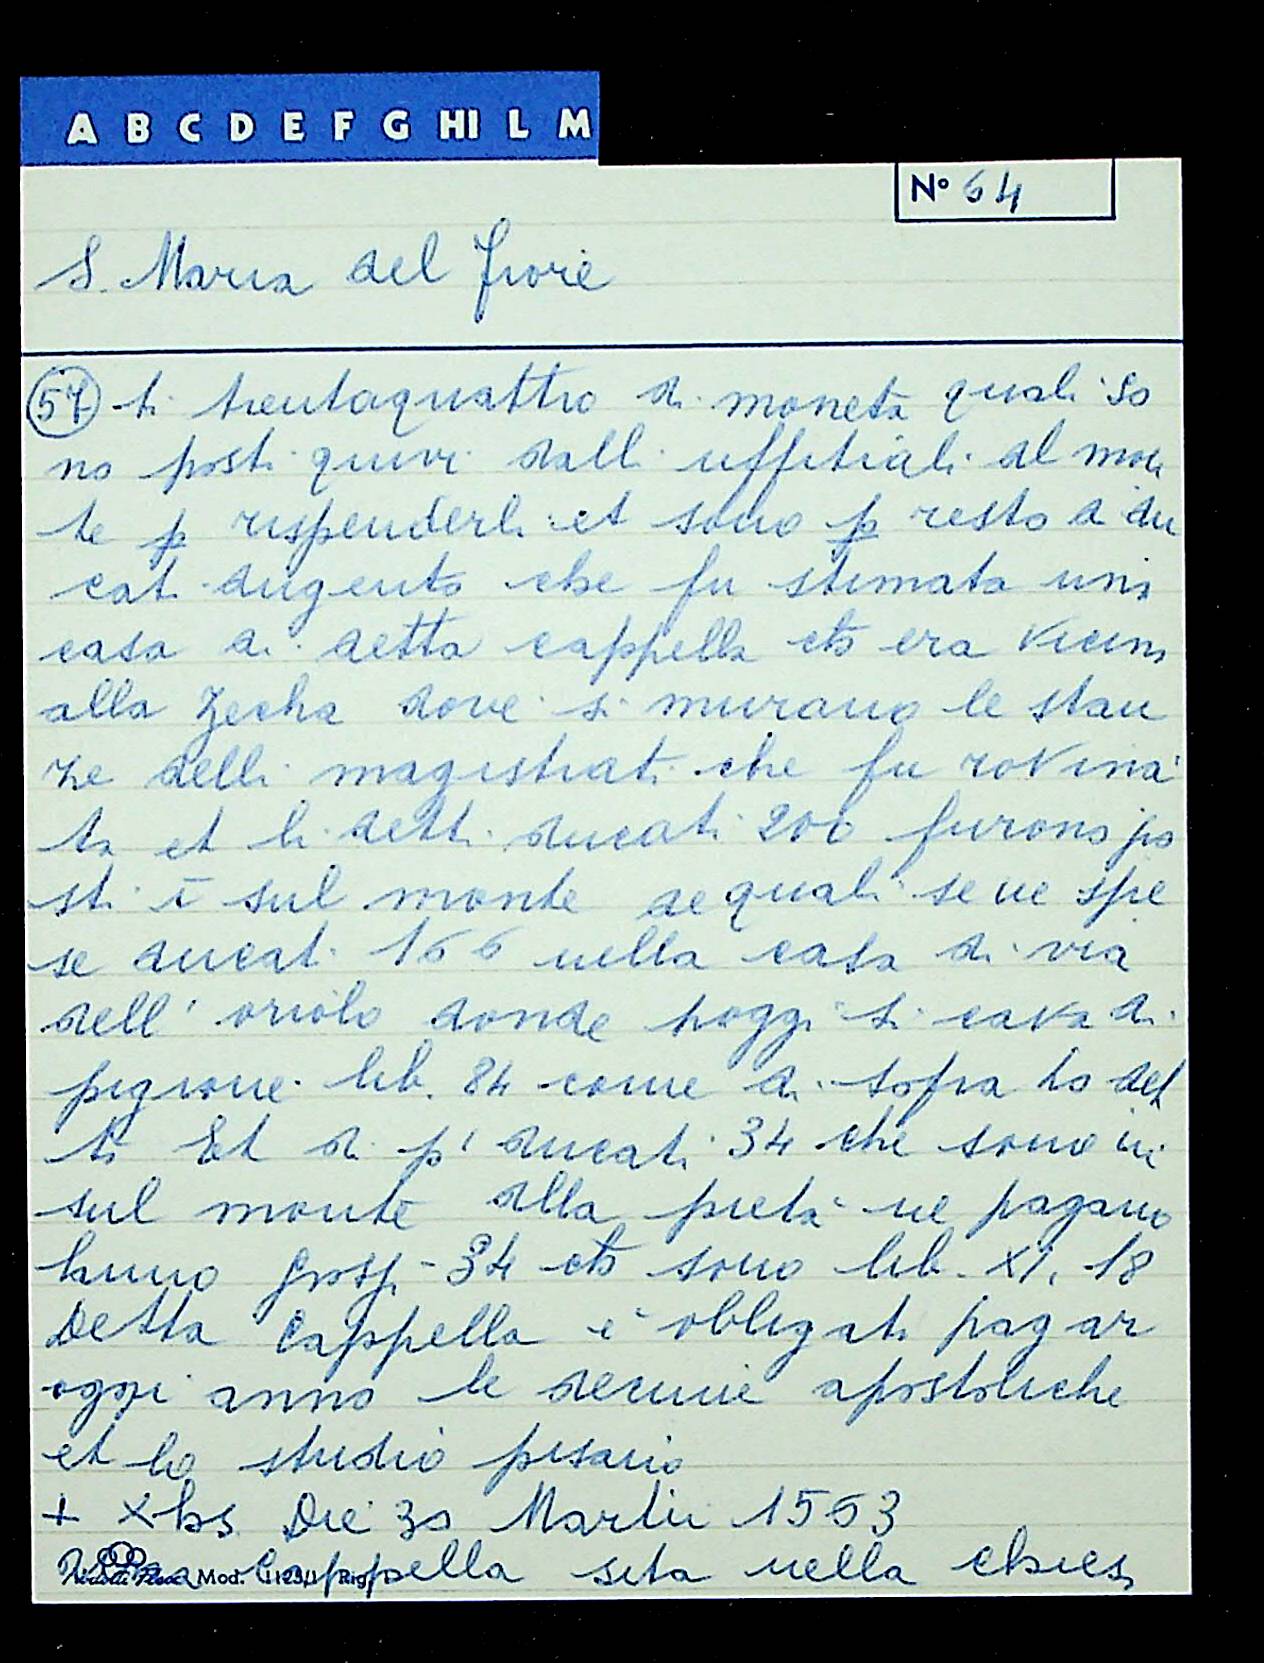 A B C D E F G HI L M
Nº 64
S. Maria del fiore
57 ti trentaquattro di moneta quali so
no posti quivi dalli uffitiali al mon
te p rispenderli et sono p resto di du
cati dugento che fu stimata una
casa di detta cappella che era vicina
alla zecha dove si murano le stan
ze delli magistrati che fu rovina
ta et li detti ducati 200 furono po
sti ī sul monte de quali se ne spe
se ducati 166 nella casa di via
dell' oriolo donde hoggi si cava di
pigione lib. 84 come di sopra ho det
to Et di p' ducati 34 che sono in
sul monte della pietà ne pagano
lanno grossi 34 che sono lib. XI. 18
Detta Cappella è obligata pagar
ogni anno le decime apostoliche
et lo studio pisano
+ Xhs Die 30 Martii 1563
Cappella sita nella chiesa
Mod. Rig.